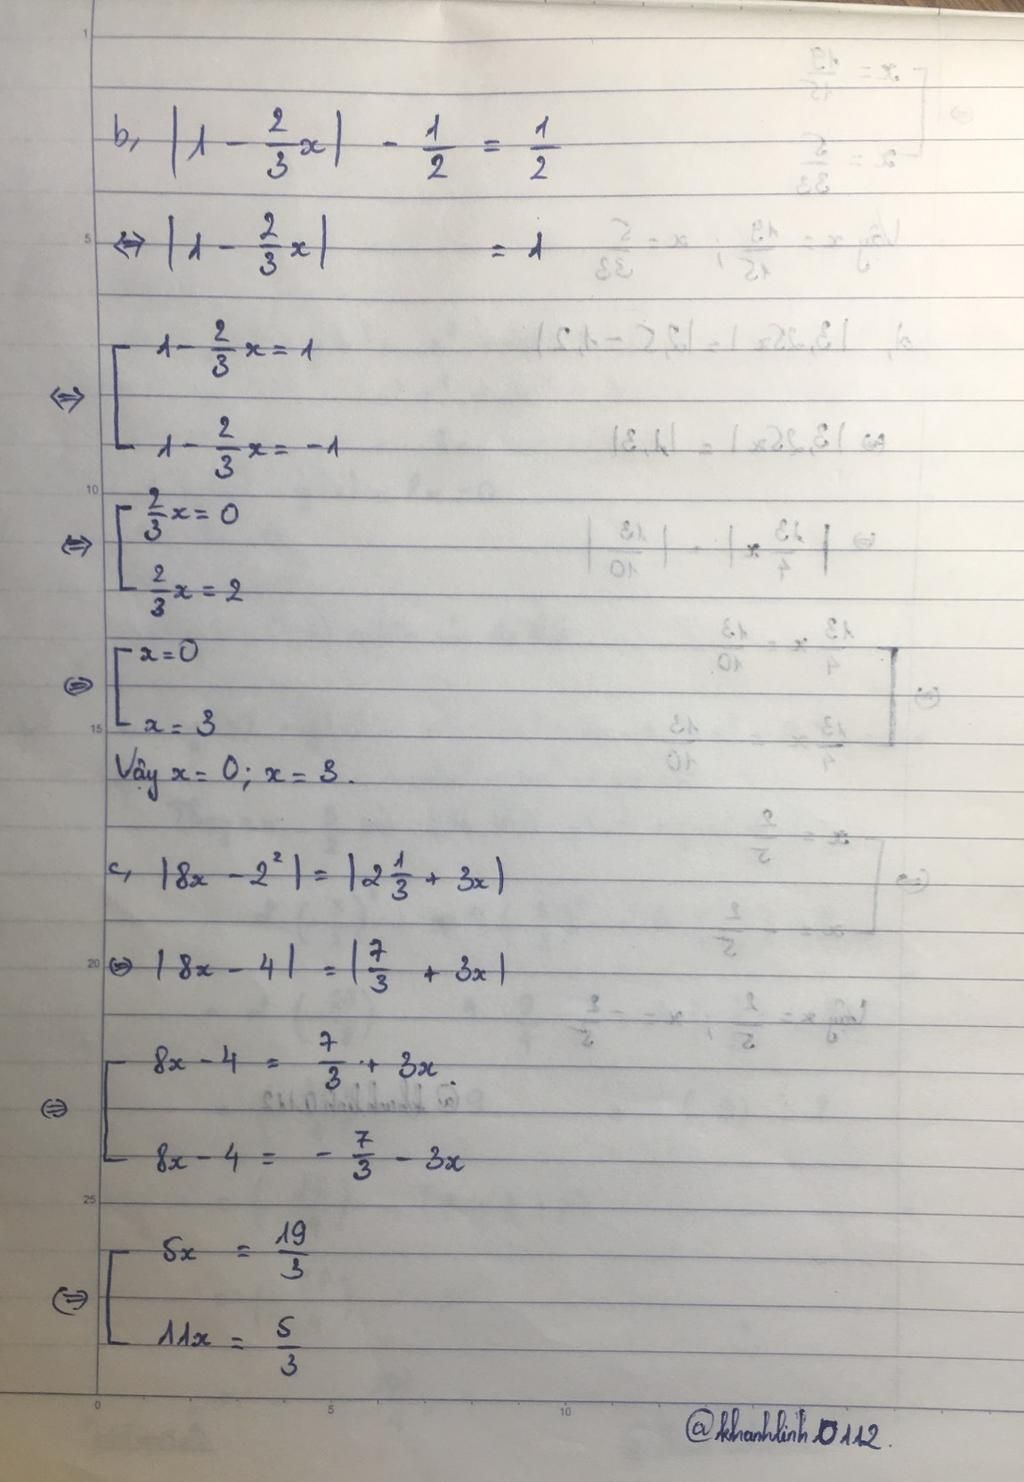 b, |1 - 2/3 x| - 1/2 = 1/2
⇔ |1 - 2/3 x| = 1
1 - 2/3 x = 1
⇔
1 - 2/3 x = -1
10
2/3 x = 0
⇔
2/3 x = 2
x = 0
⇔
x = 3
Vậy x = 0; x = 3.
c, |8x - 2²| = |2 1/3 + 3x|
⇔ |8x - 4| = |7/3 + 3x|
8x - 4 = 7/3 + 3x
⇔
8x - 4 = - 7/3 - 3x
25
5x = 19/3
⇔
11x = 5/3
0 5 10
@khanhlinh0112.